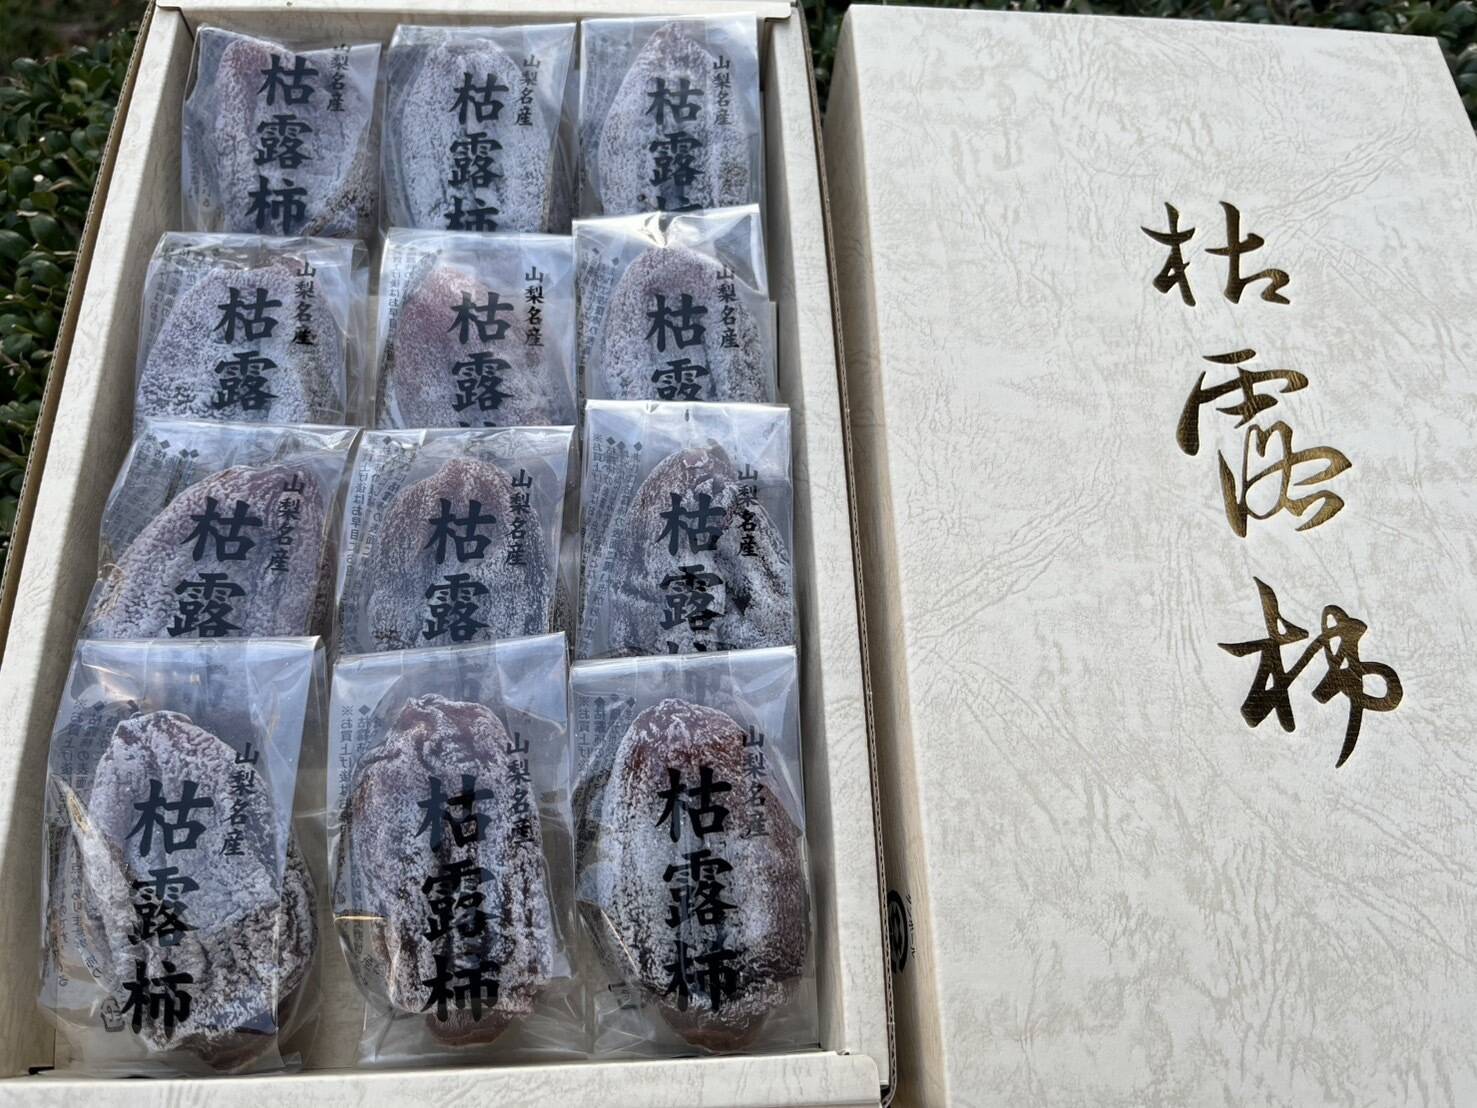 山梨名産
枯露柿
山梨名産
枯露柿
山梨名産
枯露柿
山梨名産
枯露
山梨名産
枯露
山梨名産
枯露
山梨名産
枯露
山梨名産
枯露
山梨名産
枯露柿
山梨名産
枯露柿
山梨名産
枯露柿
山梨名産
枯露柿
枯露柿
ダンボール